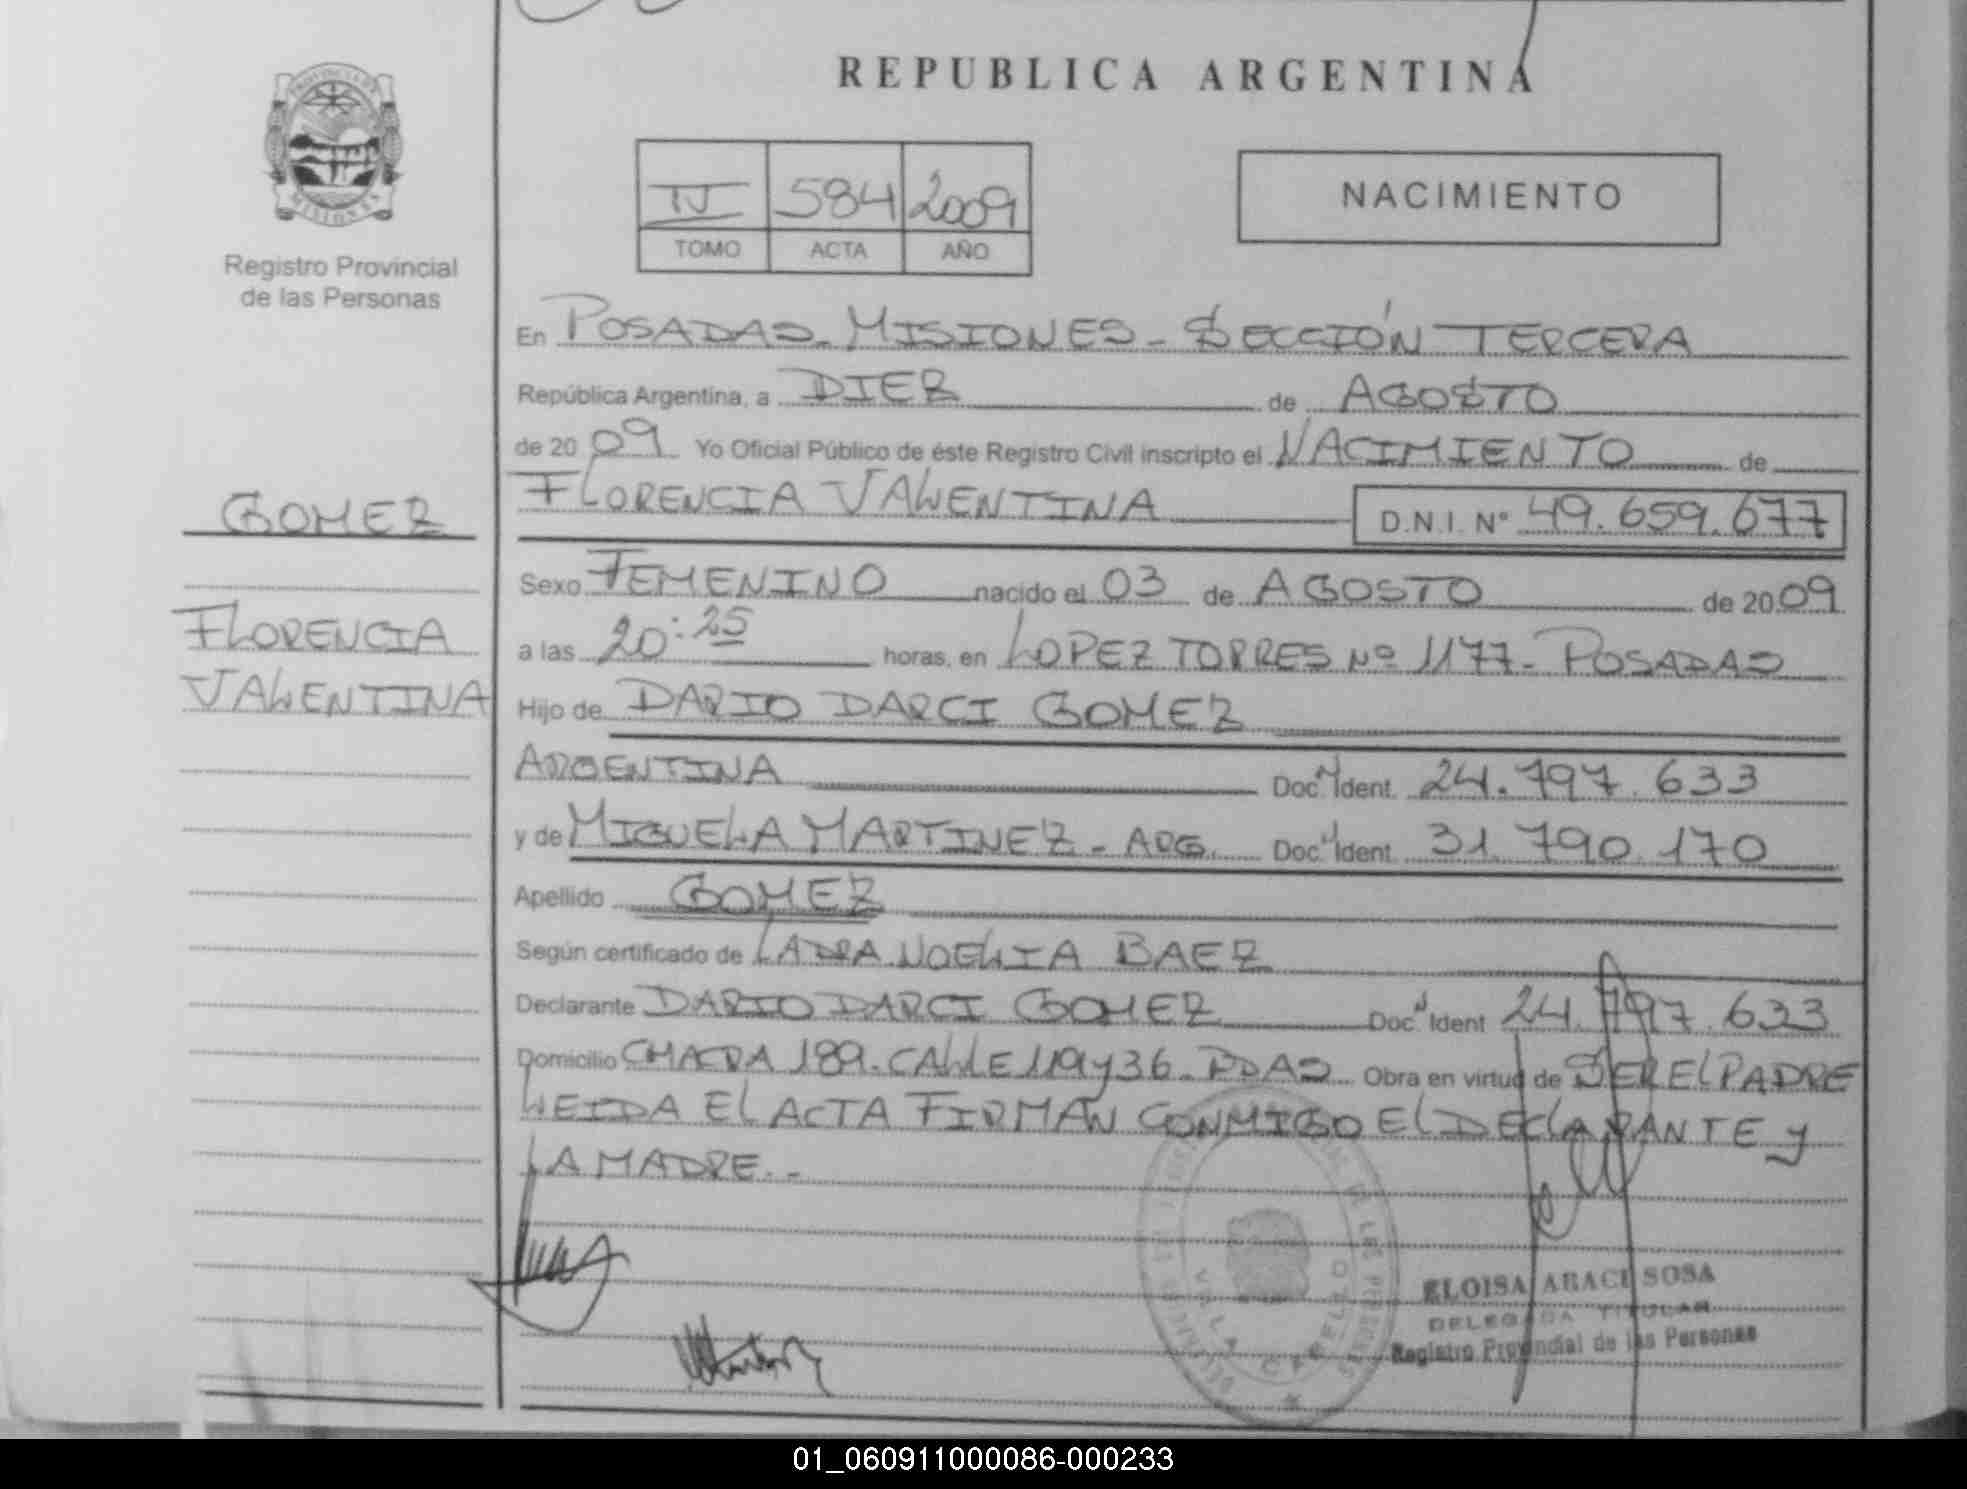 REPUBLICA ARGENTINA
PROVINCIA DE
MISIONES
Registro Provincial
de las Personas
IV 584 2009
TOMO ACTA AÑO
NACIMIENTO
En POSADAS - MISIONES - SECCIÓN TERCERA
República Argentina, a DIEZ de AGOSTO
de 2009 Yo Oficial Público de éste Registro Civil inscripto el NACIMIENTO de
FLORENCIA VALENTINA D.N.I. Nº 49.659.677
GOMEZ
FLORENCIA
VALENTINA
Sexo FEMENINO nacido el 03 de AGOSTO de 2009
a las 20:25 horas, en LOPEZ TORRES Nº 1177 - POSADAS
Hijo de DARIO DARCI GOMEZ
ARGENTINA Doc. Ident. 24.797.633
y de MIGUELA MARTINEZ - ARG. Doc. Ident. 31.790.170
Apellido GOMEZ
Según certificado de NOELIA BAEZ
Declarante DARIO DARCI GOMEZ Doc. Ident 24.797.633
Domicilio CHACRA 189 - CALLE 119 y 36 - PDAS Obra en virtud de SER EL PADRE
LEIDA EL ACTA FIRMAN CONMIGO EL DECLARANTE y
LA MADRE. -
ELOISA ARACI SOSA
DELEGADA TITULAR
Registro Provincial de las Personas
01_060911000086-000233